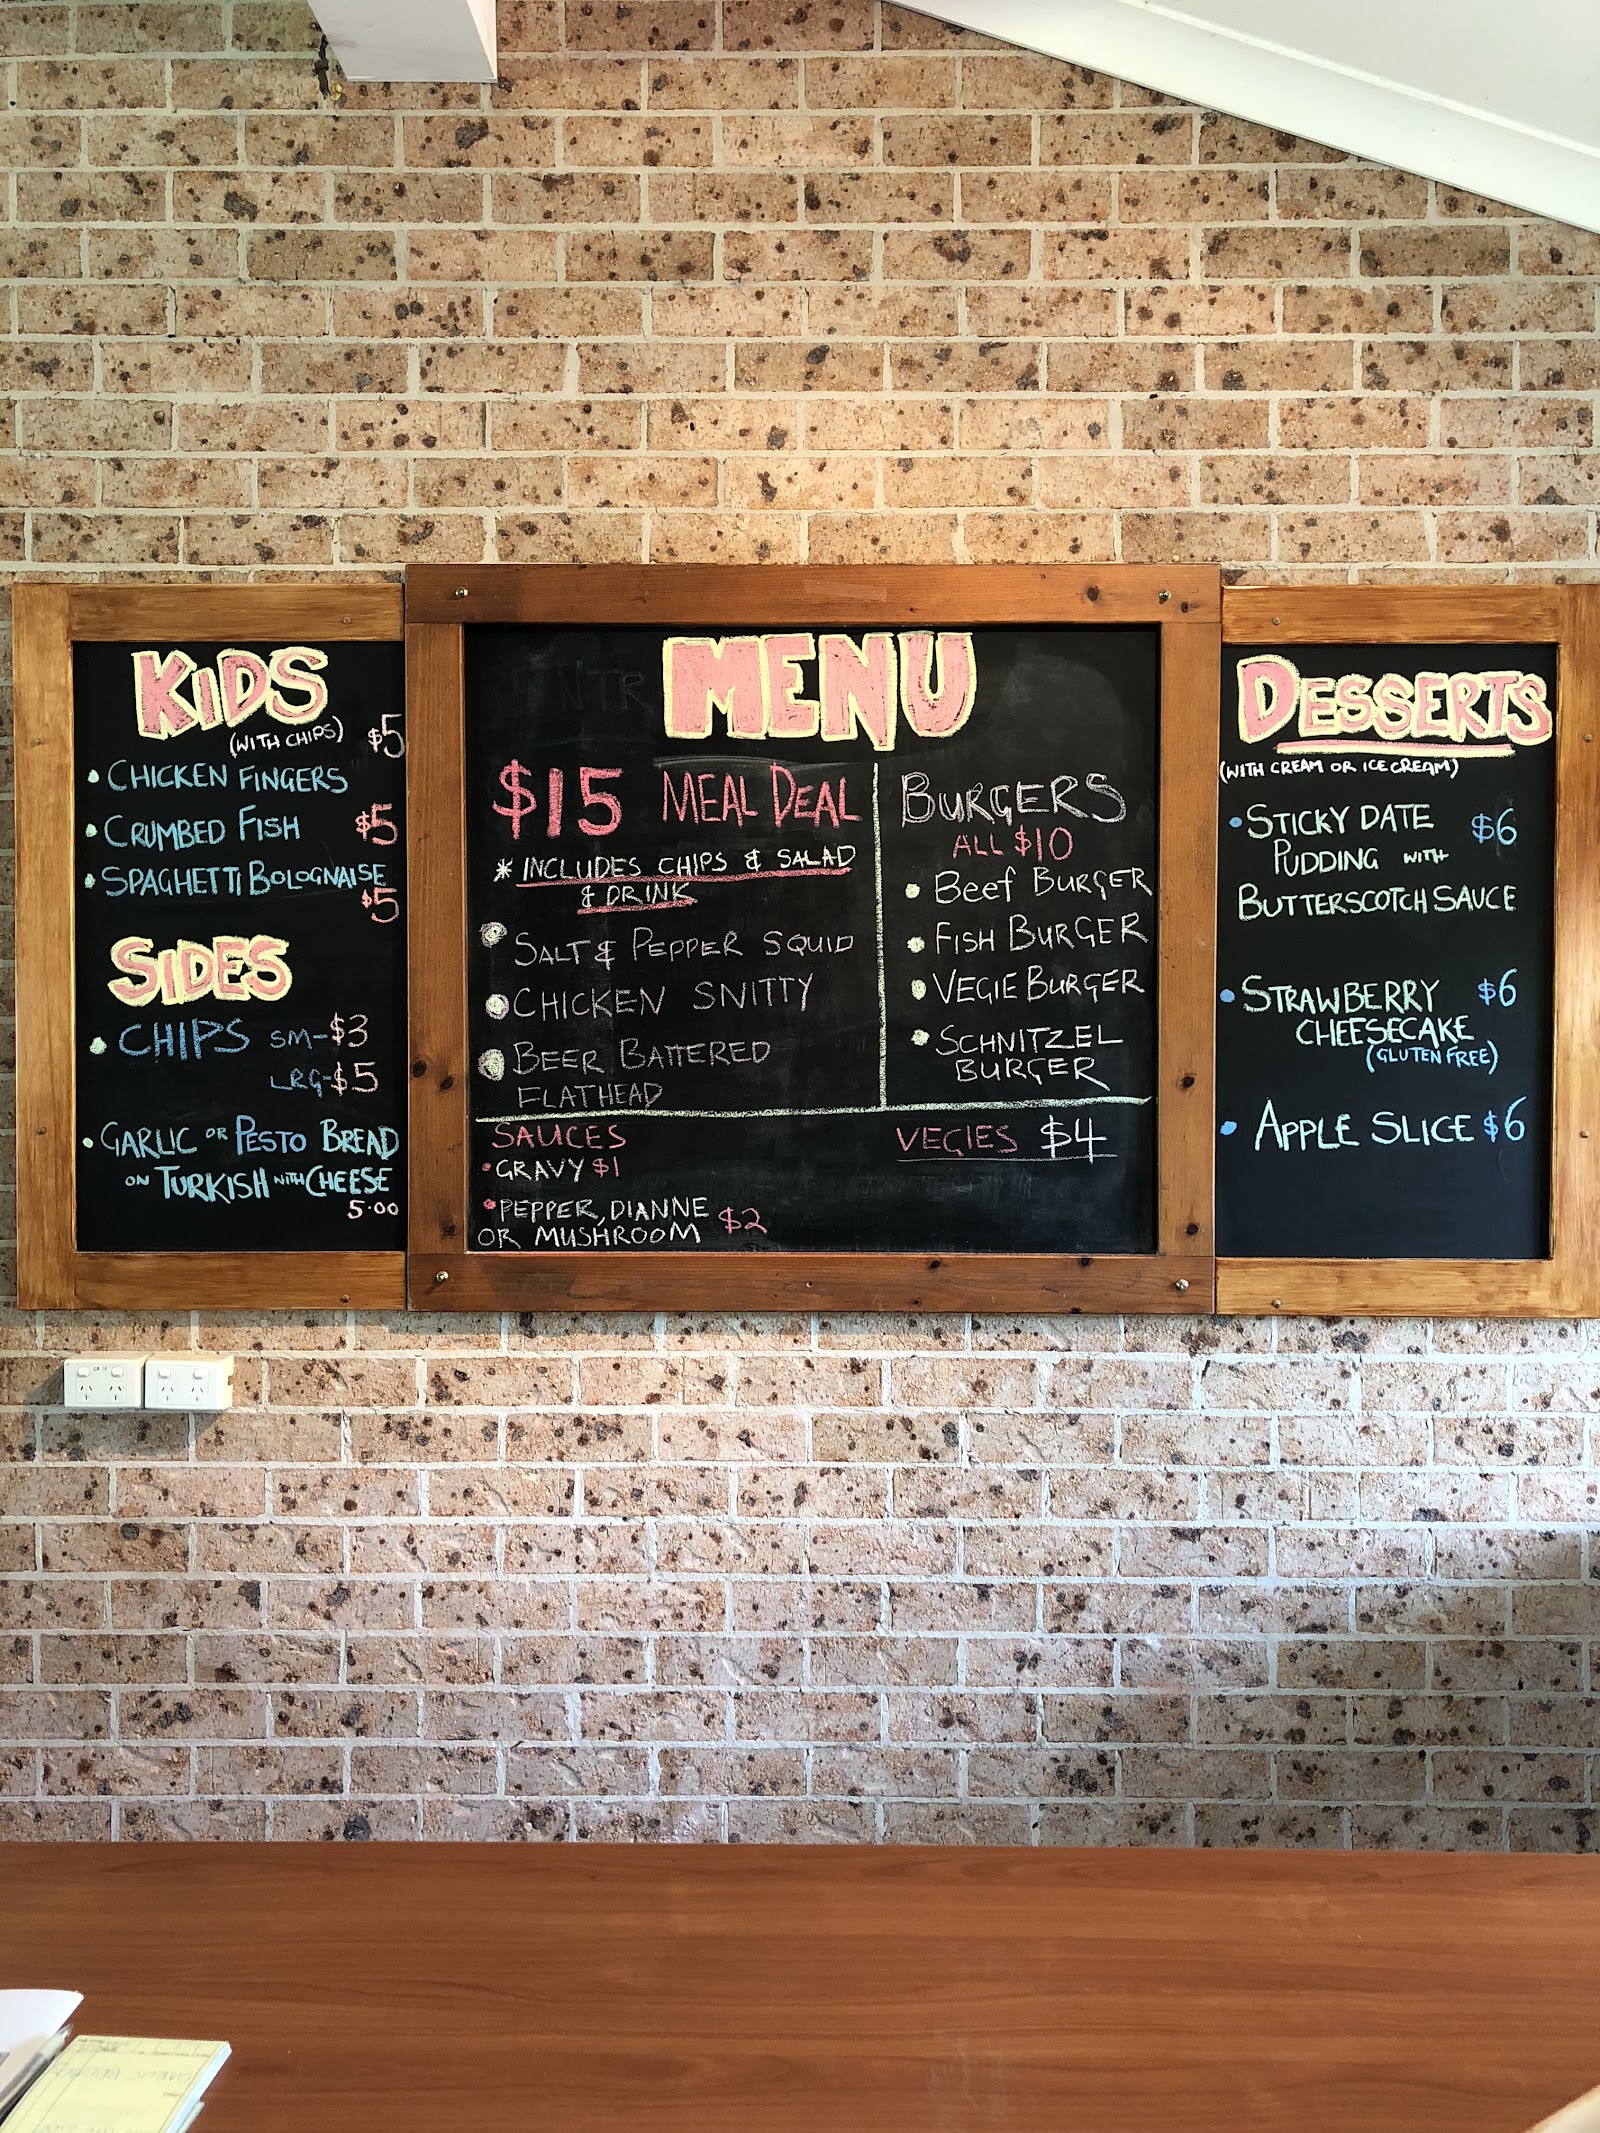 KIDS
(WITH CHIPS) $5
• CHICKEN FINGERS
• CRUMBED FISH $5
• SPAGHETTI BOLOGNAISE
$5
SIDES
• CHIPS SM-$3
LRG-$5
• GARLIC OR PESTO BREAD
ON TURKISH WITH CHEESE
5.00
MENU
$15 MEAL DEAL
* INCLUDES CHIPS & SALAD
& DRINK
• SALT & PEPPER SQUID
• CHICKEN SNITTY
• BEER BATTERED
FLATHEAD
BURGERS
ALL $10
• Beef BURGER
• FISH BURGER
• VEGIE BURGER
• SCHNITZEL
BURGER
SAUCES
• GRAVY $1
• PEPPER, DIANNE
OR MUSHROOM $2
VEGIES $4
DESSERTS
(WITH CREAM OR ICE CREAM)
• STICKY DATE $6
PUDDING WITH
BUTTERSCOTCH SAUCE
• STRAWBERRY $6
CHEESECAKE
(GLUTEN FREE)
• APPLE SLICE $6